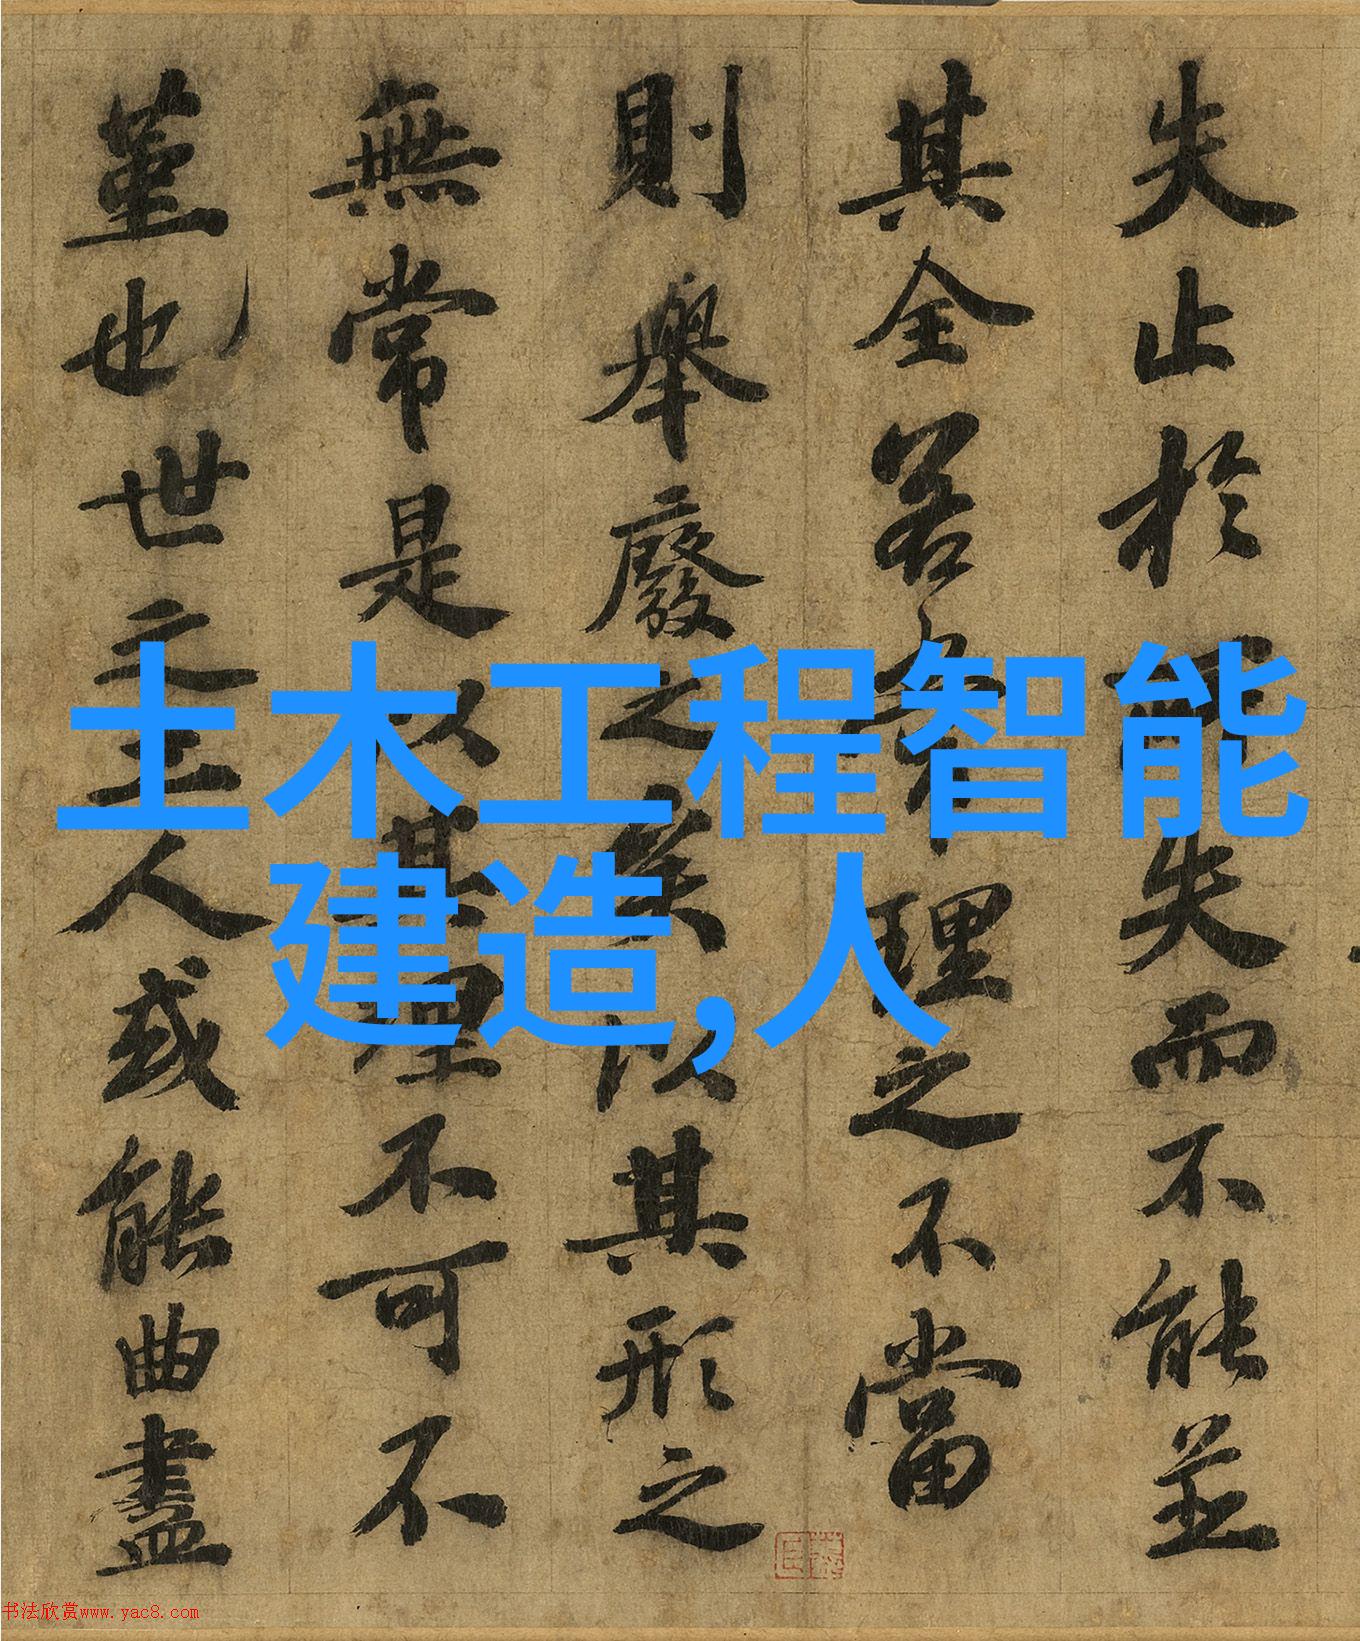 失止於失而不能並
其全若理之不當
則舉廢之矣以其形之
無常是以其理不可不
堇也世之工人或能曲盡
土木工程智能
建造,人
书法欣赏www.yac8.com